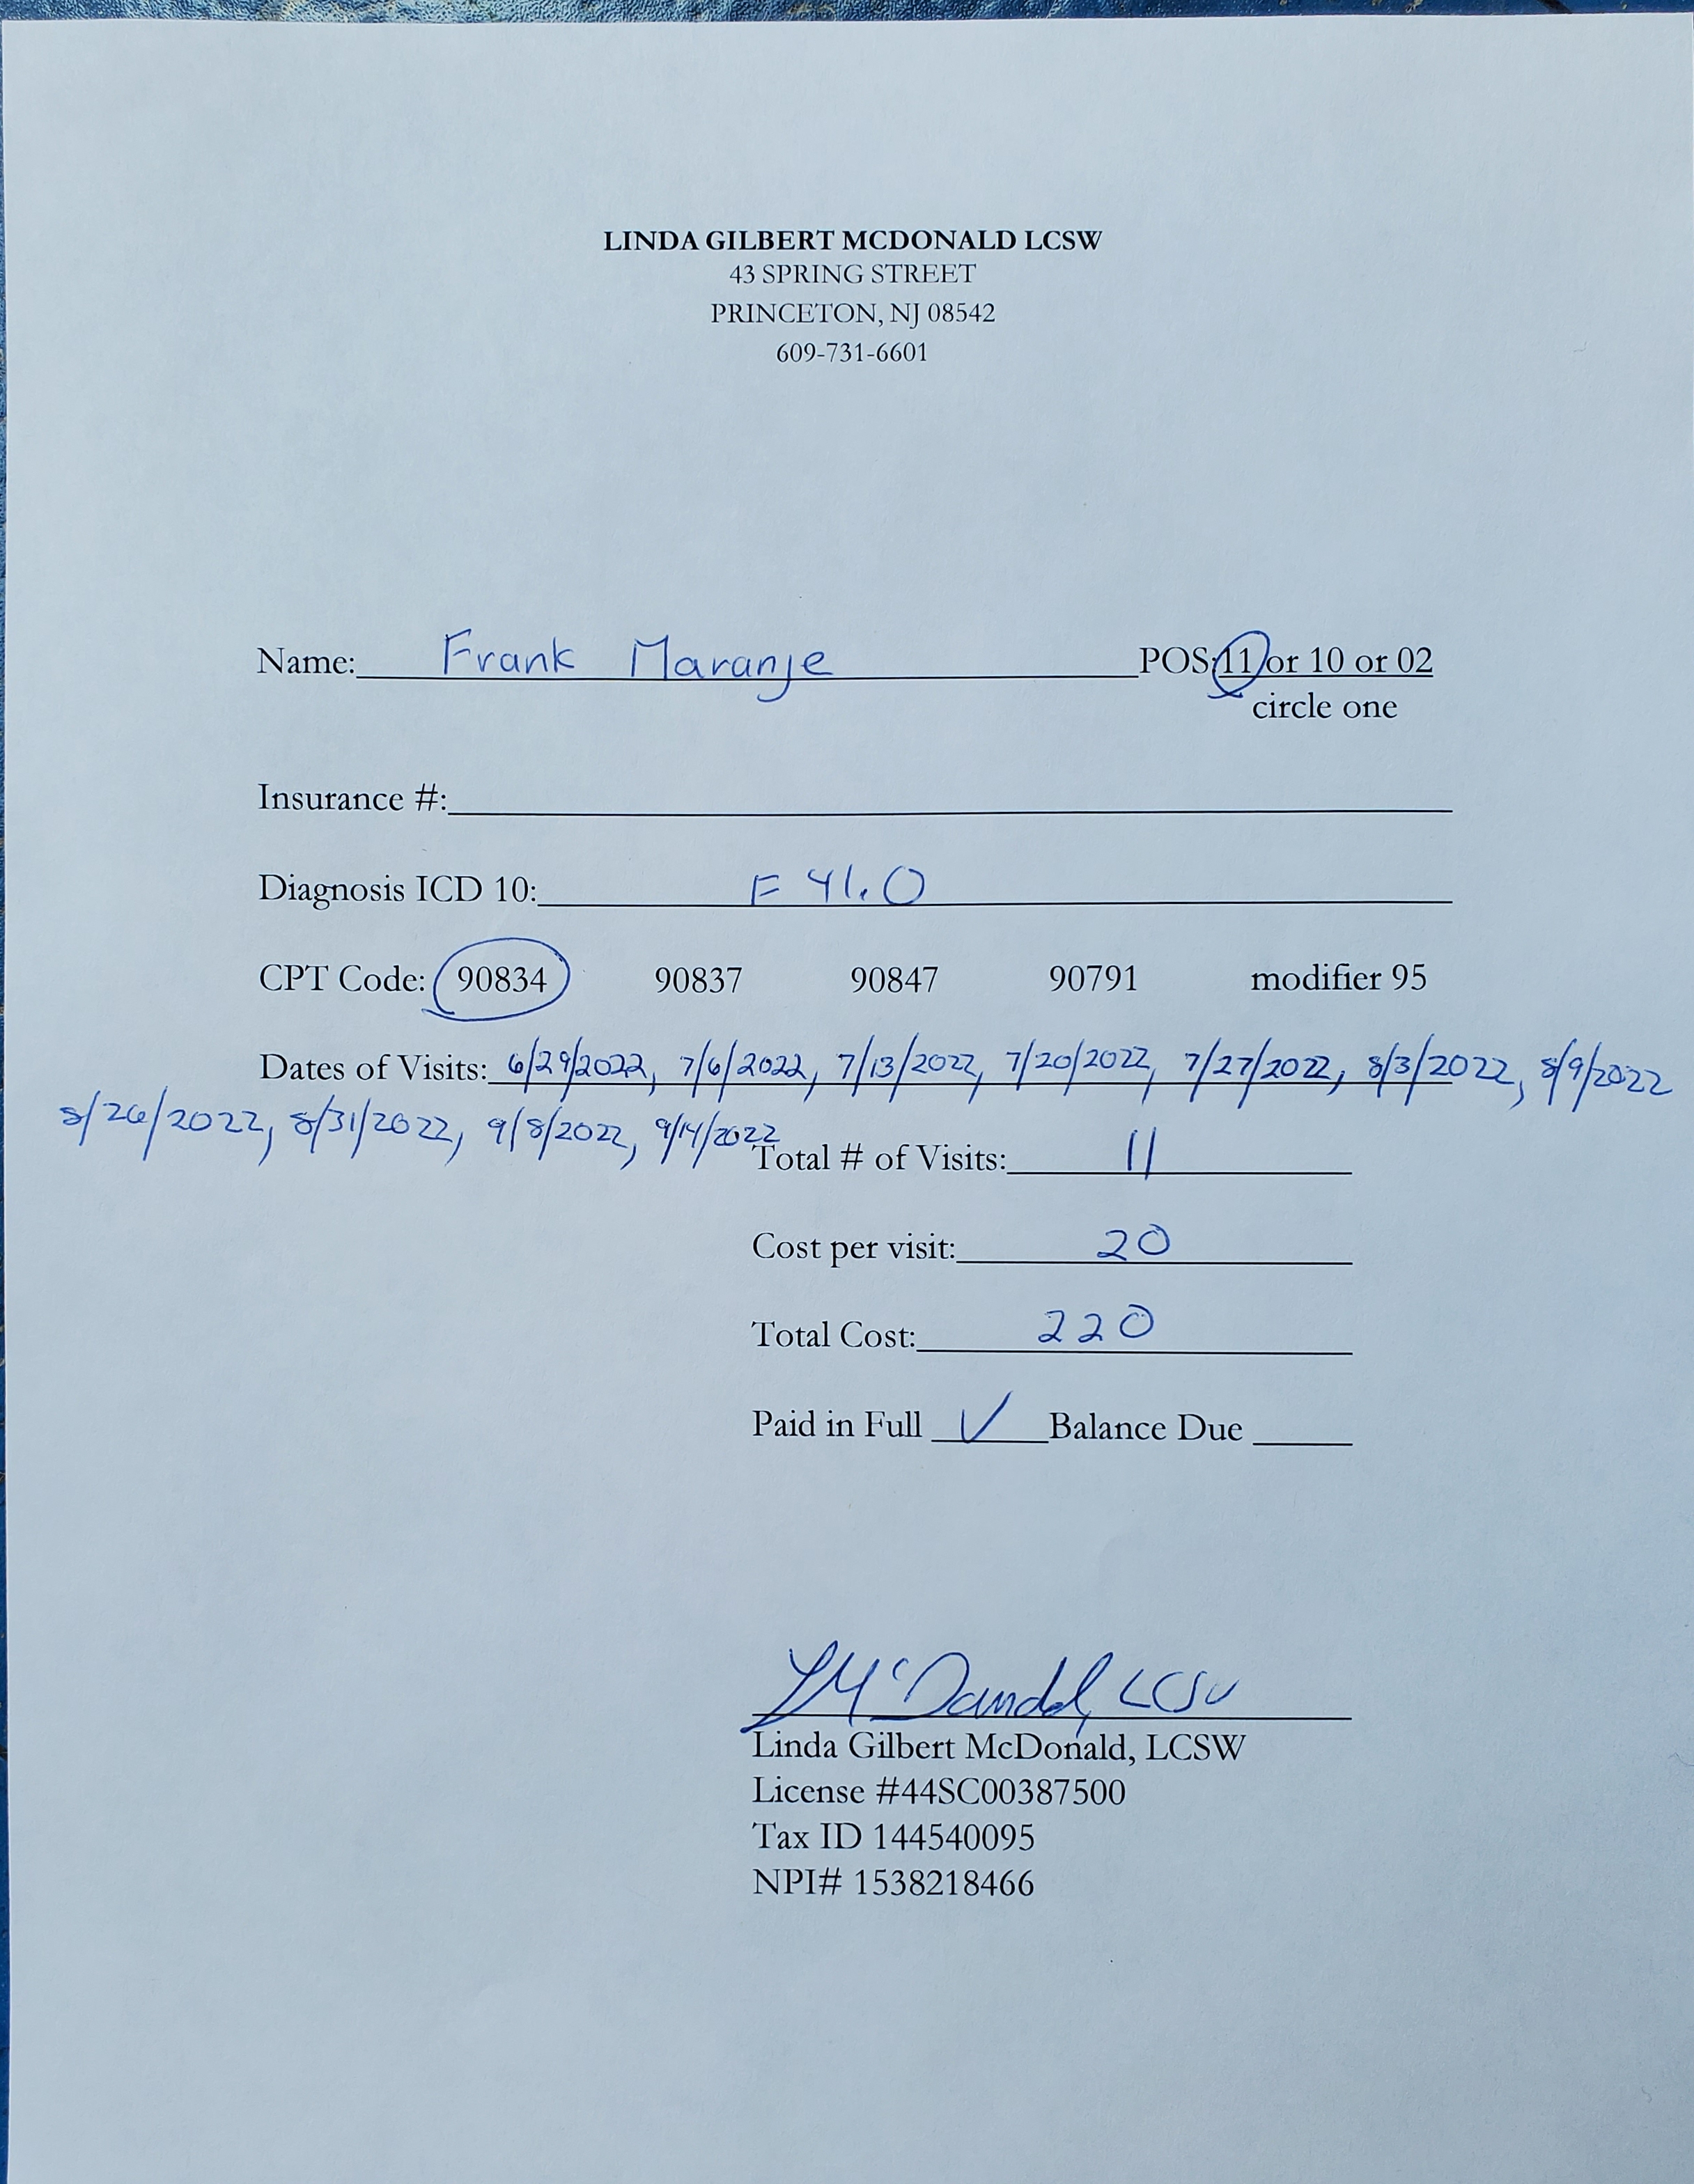 LINDA GILBERT MCDONALD LCSW
43 SPRING STREET
PRINCETON, NJ 08542
609-731-6601
Name: Frank Maranje POS: 11 or 10 or 02
circle one
Insurance #:
Diagnosis ICD 10: F 41.0
CPT Code: 90834 90837 90847 90791 modifier 95
Dates of Visits: 6/29/2022, 7/6/2022, 7/13/2022, 7/20/2022, 7/27/2022, 8/3/2022, 8/9/2022
8/26/2022, 8/31/2022, 9/8/2022, 9/14/2022
Total # of Visits: 11
Cost per visit: 20
Total Cost: 220
Paid in Full ✓ Balance Due
LMcDonald, LCSW
Linda Gilbert McDonald, LCSW
License #44SC00387500
Tax ID 144540095
NPI# 1538218466